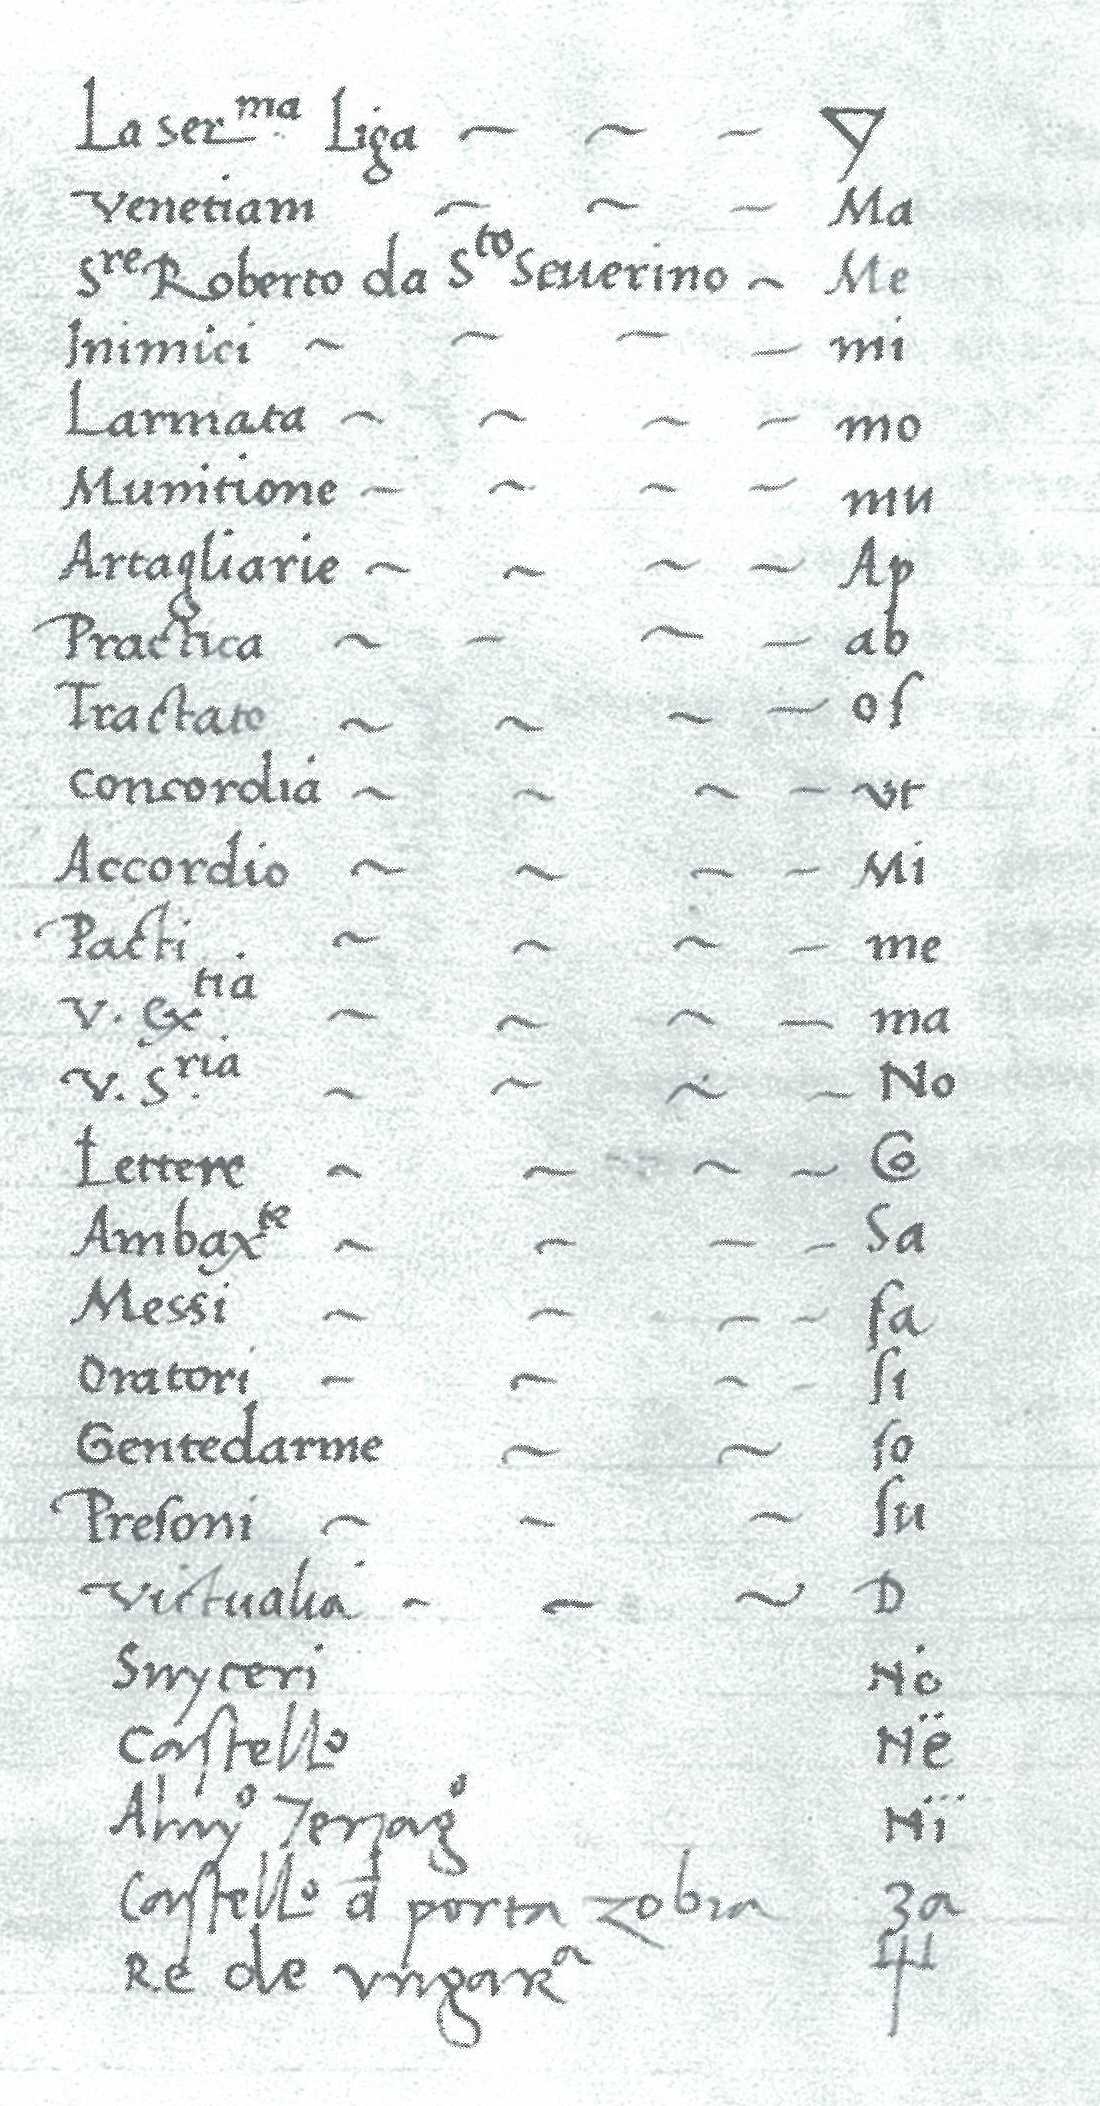 La ser.ma Liga ~ ~ ~
Venetiani ~ ~ ~ Ma
Sre Roberto da Sto Seuerino ~ Me
Jnimici ~ ~ ~ ~ mi
Larmata ~ ~ ~ ~ mo
Munitione ~ ~ ~ ~ mu
Artagliarie ~ ~ ~ ~ Ap
Practica ~ ~ ~ ~ ab
Tractato ~ ~ ~ ~ oſ
concordia ~ ~ ~ ~ vt
Accordio ~ ~ ~ ~ Mi
Pacti ~ ~ ~ ~ me
V. Extia ~ ~ ~ ~ ma
V. S.ria ~ ~ ~ ~ No
Lettere ~ ~ ~ ~ Co
Ambaxte ~ ~ ~ ~ Sa
Messi ~ ~ ~ ~ ſa
Oratori ~ ~ ~ ~ ſi
Gentedarme ~ ~ ſo
Preſoni ~ ~ ~ ſu
Victualia ~ ~ ~ D
Snyceri Nȯ
Caſtello Në
Ni
Caſtello d porta zobia 3a
Re de vngara